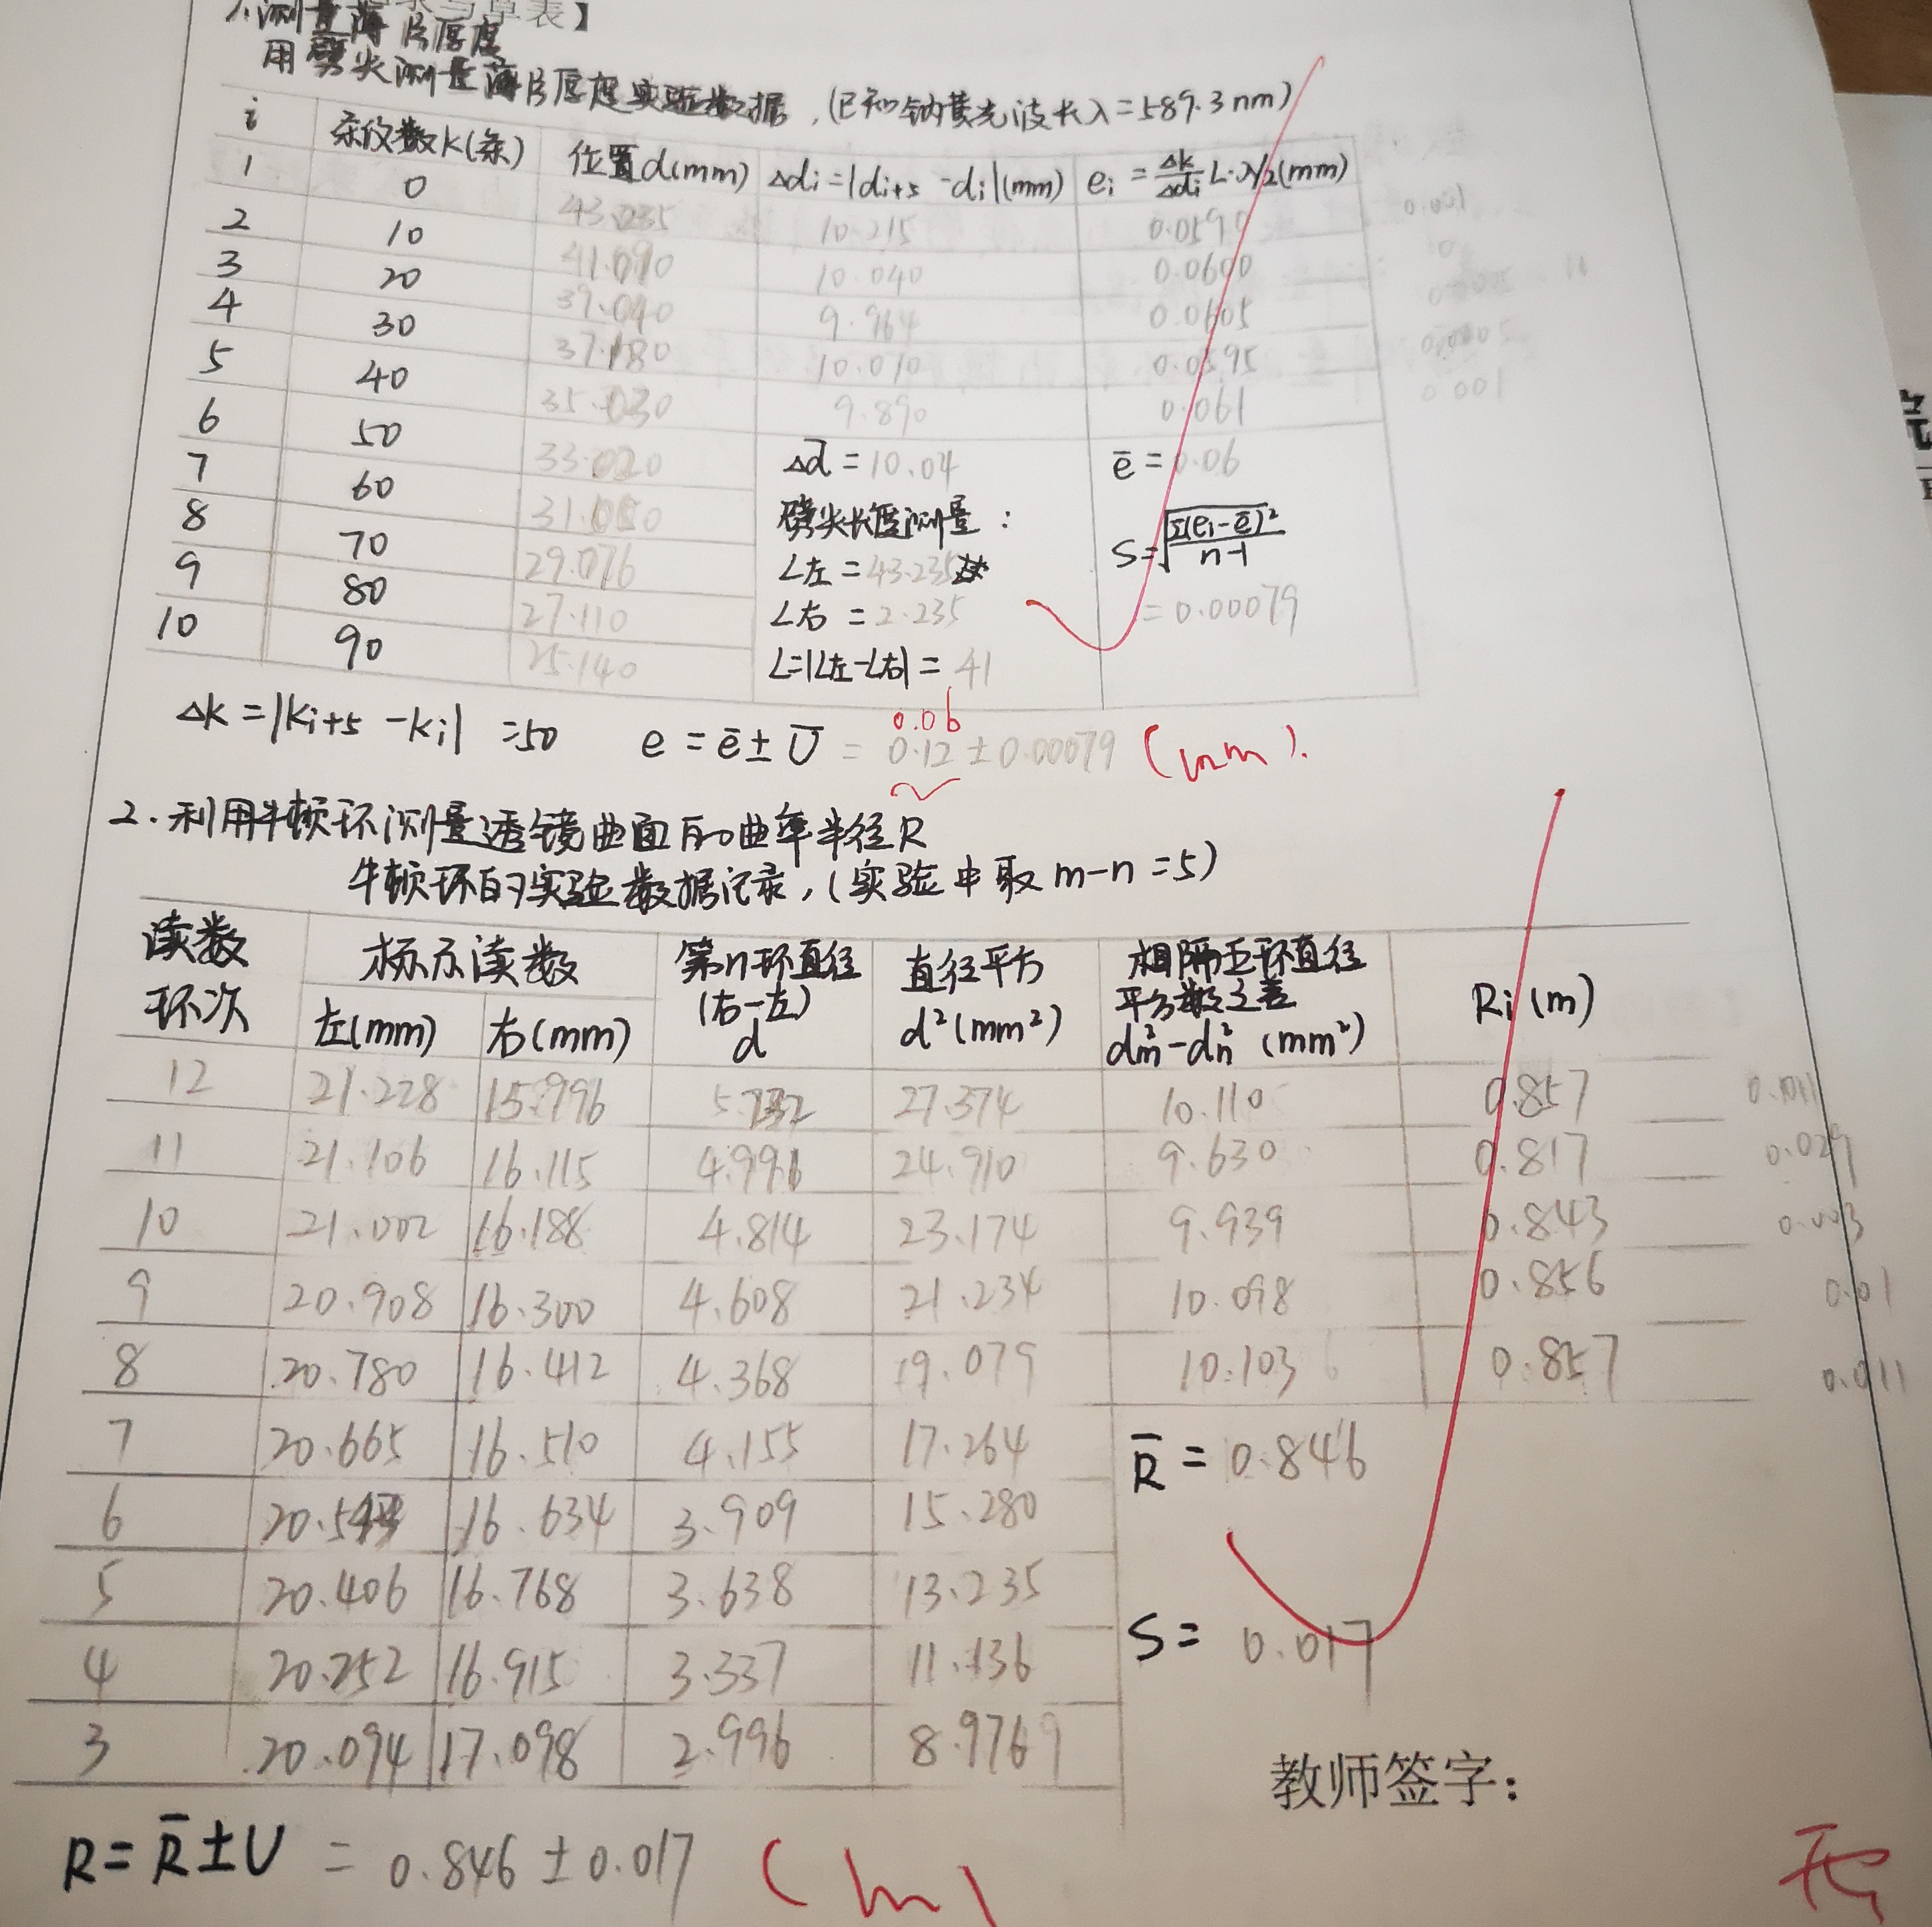 1.测量薄片厚度
用劈尖测量薄片厚度实验数据,(已知钠黄光波长λ=589.3nm)
i 条纹数k(条) 位置d(mm) Δdi=|di+5-di|(mm) ei=Δk/Δdi L·λ/2(mm)
1 0 43.235 10.215 0.0590 0.001
2 10 41.090 10.040 0.0600 0
3 20 39.040 9.964 0.0605
4 30 37.180 10.010 0.0595
5 40 35.030 9.890 0.061 0.001
6 50 33.020 Δd̄=10.04 ē=0.06
7 60 31.050 劈尖长度测量: S=√(Σ(ei-ē)²/(n-1))
8 70 29.076 L左=43.235
9 80 27.110 L右=2.235 =0.00079
10 90 25.140 L=|L左-L右|=41
0.06
Δk=|ki+5-ki|=50 e=ē±U=0.12±0.00079 (mm).
2.利用牛顿环测量透镜曲面的曲率半径R
牛顿环的实验数据记录,(实验中取m-n=5)
读数 标示读数 第n环直径 直径平方 相隔五环直径
环次 左(mm) 右(mm) (右-左) d d²(mm²) 平方数之差 dm²-dn²(mm²) Ri(m)
12 21.228 15.996 5.232 27.374 10.110 0.857 0.011
11 21.106 16.115 4.991 24.910 9.630 0.817 0.029
10 21.002 16.188 4.814 23.174 9.939 0.843 0.003
9 20.908 16.300 4.608 21.234 10.098 0.856 0.01
8 20.780 16.412 4.368 19.079 10.103 0.857 0.011
7 20.665 16.510 4.155 17.264 R̄=0.846
6 20.543 16.634 3.909 15.280
5 20.406 16.768 3.638 13.235
4 20.252 16.915 3.337 11.136 S=0.017
3 20.094 17.098 2.996 8.976
教师签字:
R=R̄±U=0.846±0.017 (m)